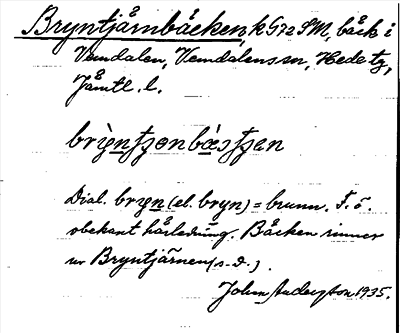 Bryntjärnbäcken, k G32 SM, bäck i
Vemdalen, Vemdalens sn, Hede tg,
Jämtl. l.
Dial. bryn (el. bryn) = brunn. F. ö.
obekant härledning. Bäcken rinner
ur Bryntjärnen (s. d.).
Johan 1935.